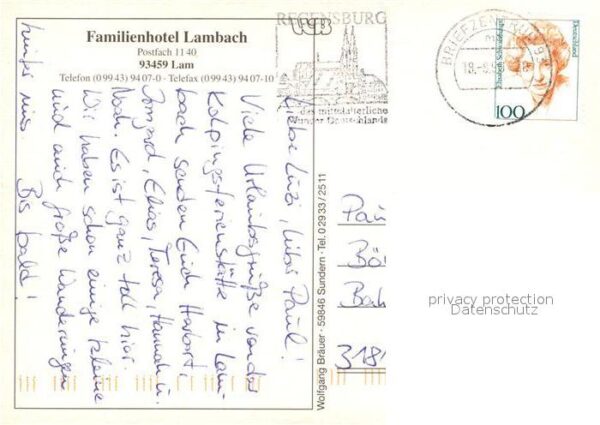 REGENSBURG
Familienhotel Lambach
Postfach 11 40
93459 Lam
Telefon (0 99 43) 94 07-0 - Telefax (0 99 43) 94 07-10
das mittelalterliche
Wunder Deutschlands
BRIEFZENTRUM 93
Elisabeth Schwarzhaupt
Deutschland
100
Liebe Luzi, lieber Paul!
Viele Urlaubsgrüße von der
Kolpingsferienstätte in Lam-
bach senden Euch Herbert,
Irmgard, Elias, Teresa, Hannah u.
Noah. Es ist ganz toll hier.
Wir haben schon einige kleine
und auch große Wanderungen
hinter uns. Bis bald!
Wolfgang Bräuer - 59846 Sundern - Tel. 0 29 33 / 25 11
Pau
Bö
Bah
318
privacy protection
Datenschutz